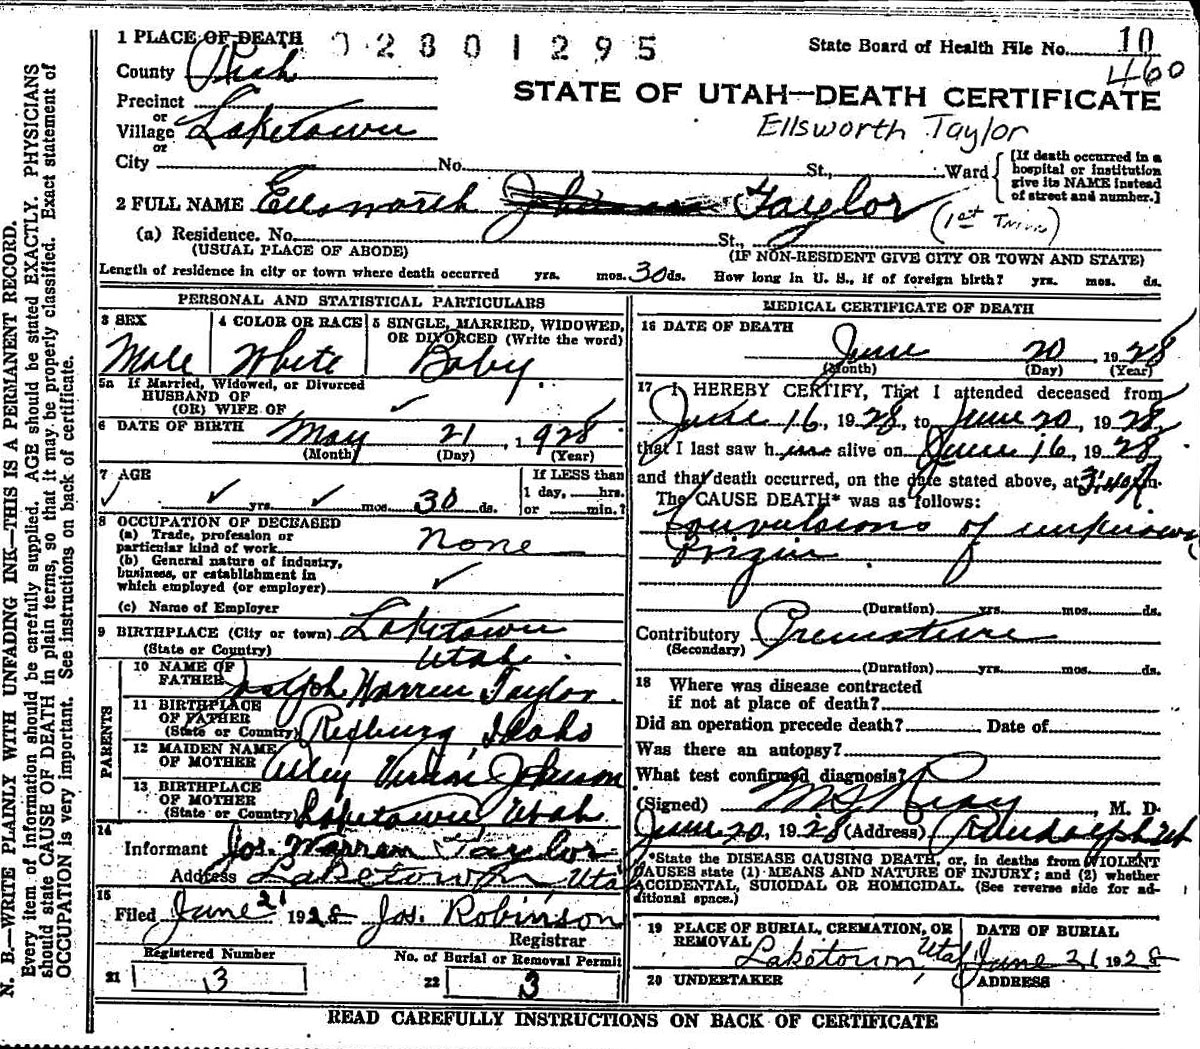 1 PLACE OF DEATH 02801295 State Board of Health File No. 10
County Rich 460
STATE OF UTAH—DEATH CERTIFICATE
Precinct
or
Village Laketown
or
Ellsworth Taylor
City No. St., Ward
[If death occurred in a hospital or institution give its NAME instead of street and number.]
2 FULL NAME Ellsworth Taylor
(1st Twin)
(a) Residence. No. St.,
(USUAL PLACE OF ABODE) (IF NON-RESIDENT GIVE CITY OR TOWN AND STATE)
Length of residence in city or town where death occurred yrs. mos. 30 ds. How long in U. S., if of foreign birth? yrs. mos. ds.
PERSONAL AND STATISTICAL PARTICULARS
3 SEX
Male
4 COLOR OR RACE
White
5 SINGLE, MARRIED, WIDOWED,
OR DIVORCED (Write the word)
Baby
5a If Married, Widowed, or Divorced
HUSBAND OF
(OR) WIFE OF ✓
6 DATE OF BIRTH May 21, 1928
(Month) (Day) (Year)
7 AGE
If LESS than
1 day, hrs.
or min.?
✓ ✓ yrs. ✓ mos. 30 ds.
8 OCCUPATION OF DECEASED
(a) Trade, profession or
particular kind of work None
(b) General nature of industry,
business, or establishment in
which employed (or employer) ✓
(c) Name of Employer
9 BIRTHPLACE (City or town) Laketown
(State or Country) Utah
PARENTS
10 NAME OF
FATHER Joseph Warren Taylor
11 BIRTHPLACE
OF FATHER
(State or Country) Rexburg, Idaho
12 MAIDEN NAME
OF MOTHER Johnson
13 BIRTHPLACE
OF MOTHER
(State or Country) Laketown Utah
14
Informant Jos. Warren Taylor
Address Laketown, Utah
15
Filed June 21 1928 Jos. Robinson
Registrar
Registered Number
21 3
No. of Burial or Removal Permit
22 3
MEDICAL CERTIFICATE OF DEATH
16 DATE OF DEATH
June 20, 1928
(Month) (Day) (Year)
17 I HEREBY CERTIFY, That I attended deceased from
June 16, 1928, to June 20, 1928,
that I last saw h alive on June 16, 1928
and that death occurred, on the date stated above, at 3:40 A m.
The CAUSE DEATH* was as follows:
Convulsions of unknown
Origin
(Duration) yrs. mos. ds.
Contributory Premature
(Secondary)
(Duration) yrs. mos. ds.
18 Where was disease contracted
if not at place of death?
Did an operation precede death? Date of
Was there an autopsy?
What test confirmed diagnosis?
(Signed) M. D.
June 20, 1928 (Address) Randolph Ut
*State the DISEASE CAUSING DEATH, or, in deaths from VIOLENT
CAUSES state (1) MEANS AND NATURE OF INJURY; and (2) whether
ACCIDENTAL, SUICIDAL OR HOMICIDAL. (See reverse side for ad-
ditional space.)
19 PLACE OF BURIAL, CREMATION, OR
REMOVAL Laketown, Utah
DATE OF BURIAL
June 21 1928
20 UNDERTAKER
ADDRESS
READ CAREFULLY INSTRUCTIONS ON BACK OF CERTIFICATE
N. B.—WRITE PLAINLY WITH UNFADING INK—THIS IS A PERMANENT RECORD.
Every item of information should be carefully supplied. AGE should be stated EXACTLY. PHYSICIANS
should state CAUSE OF DEATH in plain terms, so that it may be properly classified. Exact statement of
OCCUPATION is very important. See instructions on back of certificate.